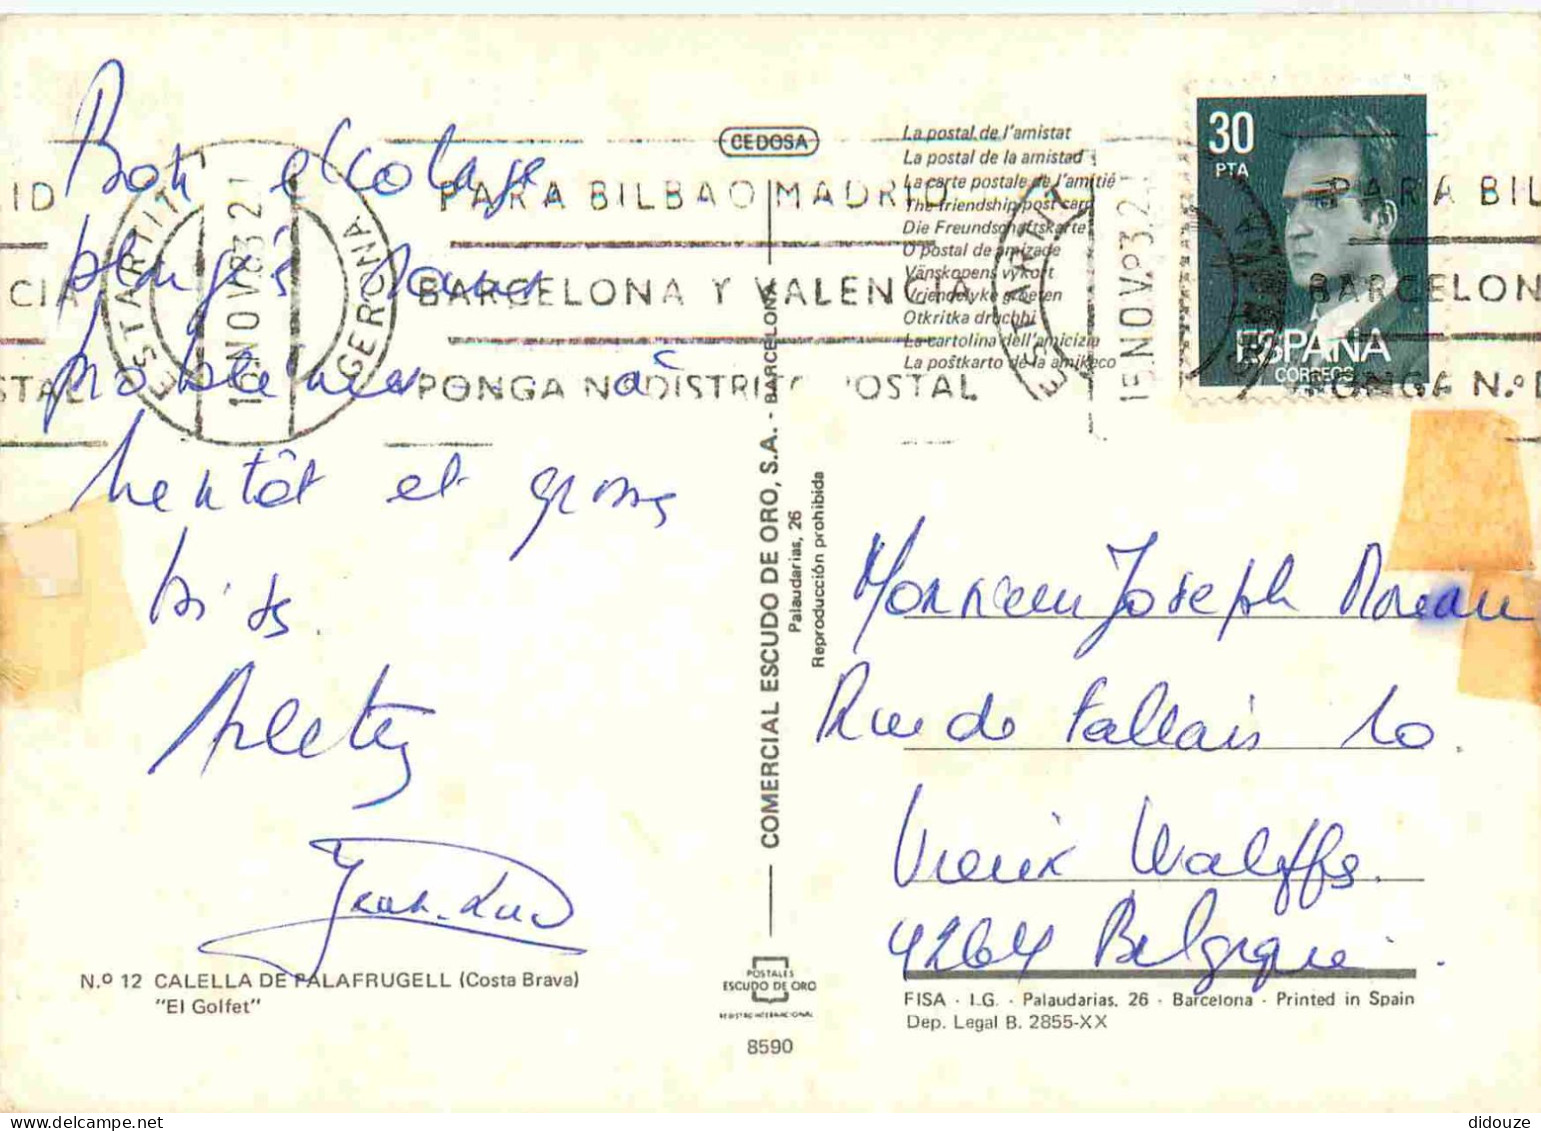 Bon écolage
plongés sans
problèmes à
bientôt et gros
bisous
Arlette
Jean-Luc
N.º 12 CALELLA DE PALAFRUGELL (Costa Brava)
"El Golfet"
ESTARTIT
15 NOV 83 21
GERONA
PARA BILBAO MADRID
BARCELONA Y VALENCIA
PONGA N.º DISTRITO POSTAL
CEDOSA
COMERCIAL ESCUDO DE ORO, S.A. - BARCELONA
Palaudarias, 26
Reproducción prohibida
POSTALES
ESCUDO DE ORO
REGISTRO INTERNACIONAL
8590
La postal de l'amistat
La postal de la amistad
La carte postale de l'amitié
The friendship post card
Die Freundschaftskarte
O postal de amizade
Vänskopens vykort
Vriendelyke groeten
Otkritka druchbi
La cartolina dell'amicizia
La poŝtkarto de la amikeco
30
PTA
ESPAÑA
CORREOS
Monsieur Joseph Moreau
Rue de Fallais 10.
Vieux Waleffes.
4264 Belgique.
FISA - I.G. - Palaudarias, 26 - Barcelona - Printed in Spain
Dep. Legal B. 2855-XX
didouze